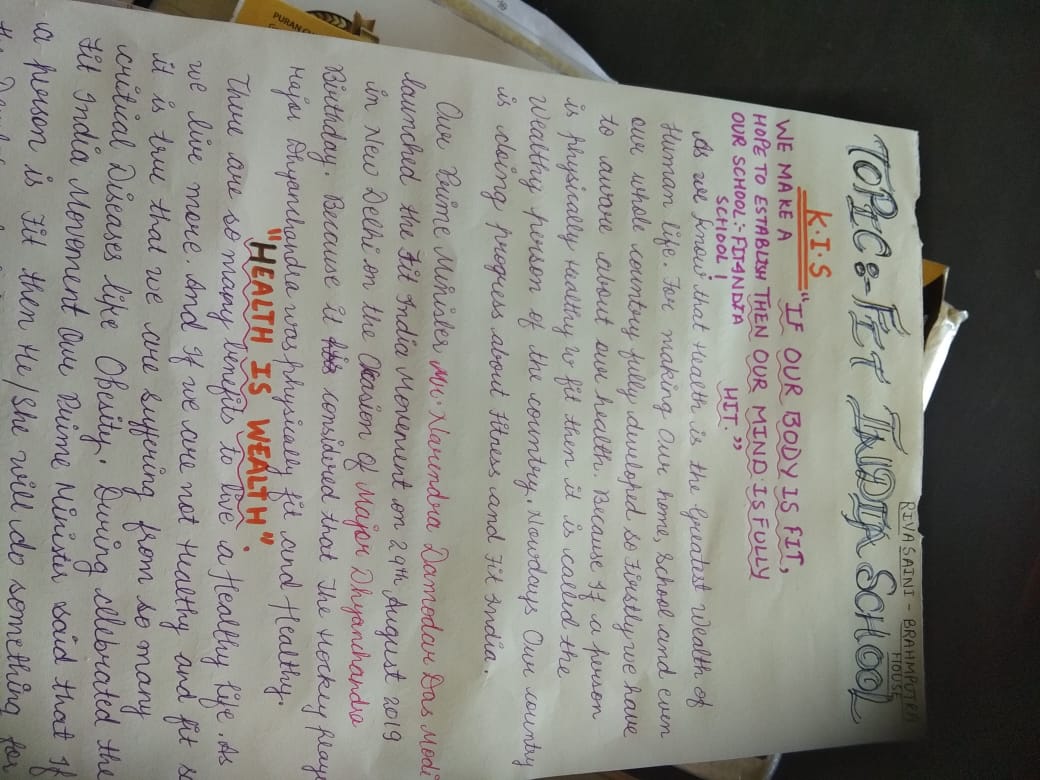 RIYA SAINI - BRAHMPUTRA
HOUSE
TOPIC:- FIT INDIA SCHOOL
K.I.S "IF OUR BODY IS FIT,
WE MAKE A
HOPE TO ESTABLISH THEN OUR MIND IS FULLY
OUR SCHOOL:- FIT INDIA HIT."
SCHOOL!
As we know that Health is the Greatest Wealth of
Human life. For making our home, School and even
our whole country fully developed so Firstly we have
to aware about our health. Because If a person
is physically Healthy & fit then it is called the
Wealthy person of the country. Nowdays Our country
is doing progress about Fitness and Fit India.
Our Prime Minister Mr. Narendra Damodar Das Modi
launched the Fit India Movement on 29th August 2019
in New Delhi on the Occasion of Major Dhyanchandra
Birthday. Because it considred that The Hockey playe
major Dhyandhandra was physically fit and Healthy.
"HEALTH IS WEALTH".
There are so many benefits to live a Healthy life. As
we live more. And If we are not Healthy and fit s
it is true that we are suffering from so many
critical Diseases like Obesity. During celebrated the
Fit India Movement Our Prime Minister said that If
a person is Fit then He/She will do something for
PURAN